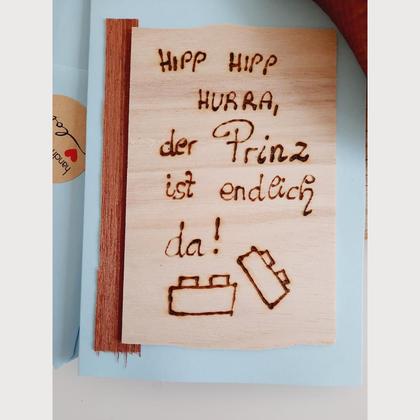 HIPP HIPP
HURRA,
der Prinz
ist endlich
da!